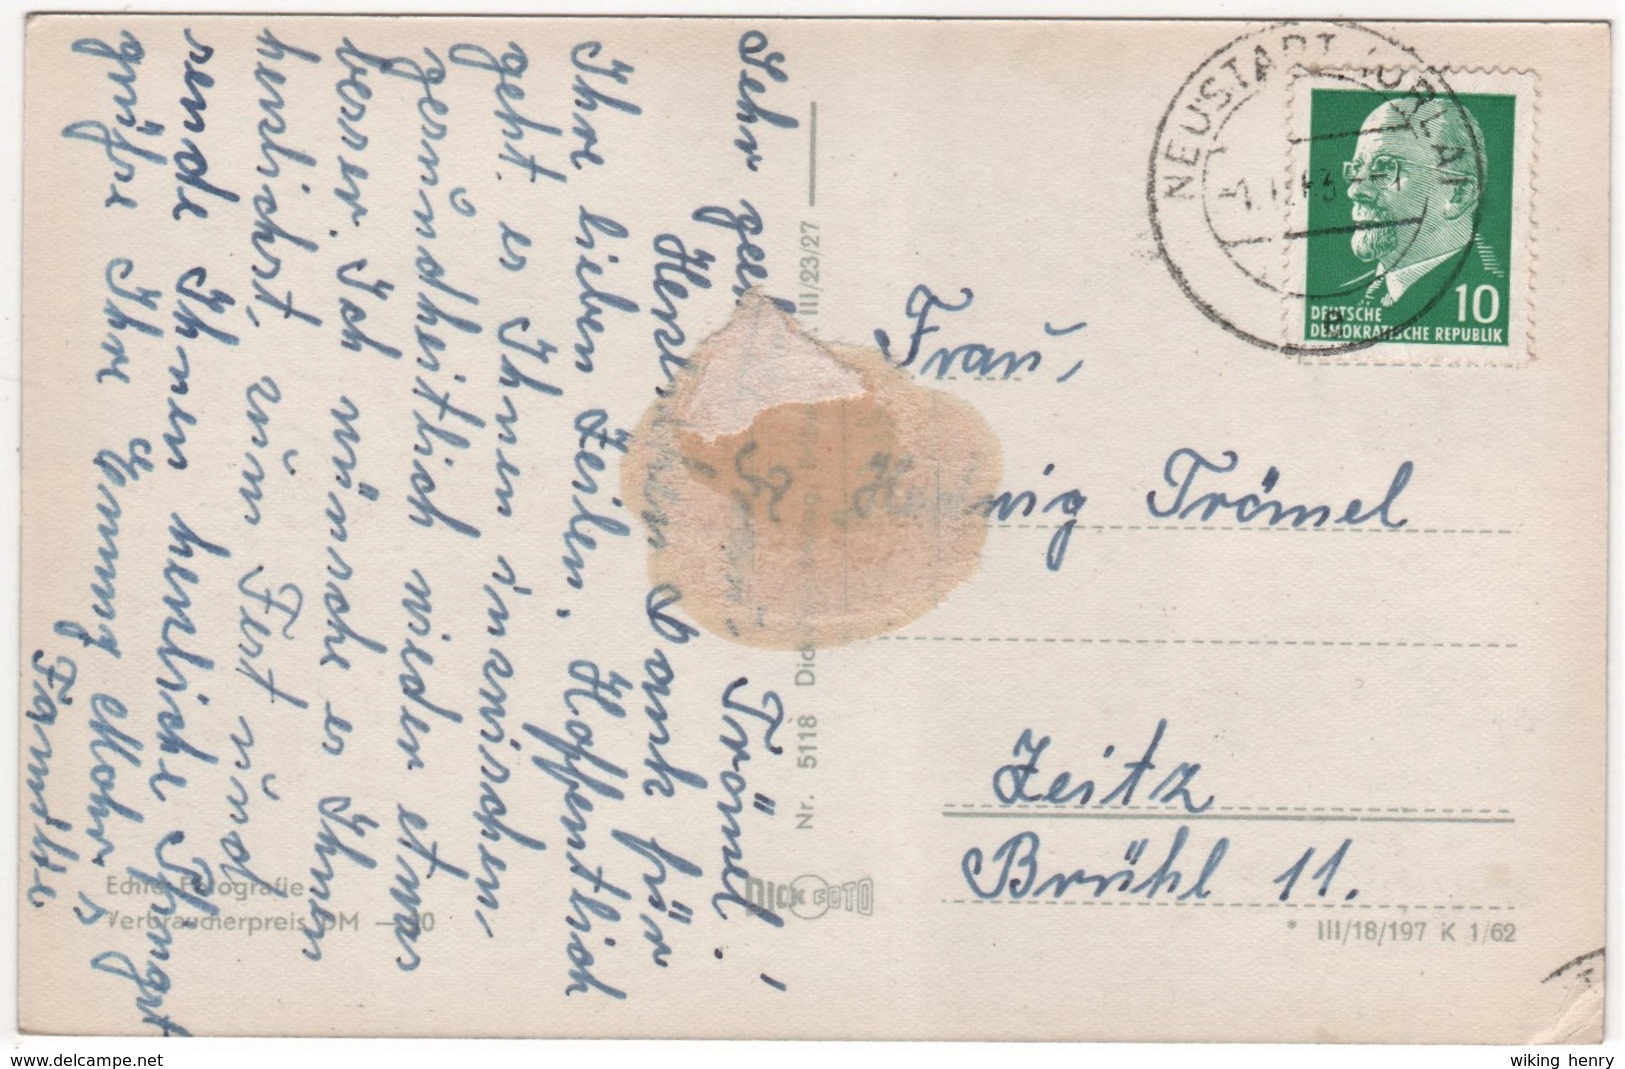 Sehr geehrte Frau Trömel!
Herzlichen Dank für
Ihre lieben Zeilen. Hoffentlich
geht es Ihnen inzwischen,
gesundheitlich wieder etwas
besser. Ich wünsche es Ihnen
herzlichst, zum Fest und
sende Ihnen herzliche Pfingst
grüße Ihre Jenny Mohr's
Familie
Nr. 5118 Dick III/23/27
Echte Fotografie
Verbraucherpreis DM
DICK FOTO
NEUSTADT (ORLA)
DEUTSCHE
DEMOKRATISCHE REPUBLIK
10
Frau,
Hedwig Trömel
Zeitz
Brühl 11.
* III/18/197 K 1/62
wiking henry
www.delcampe.net